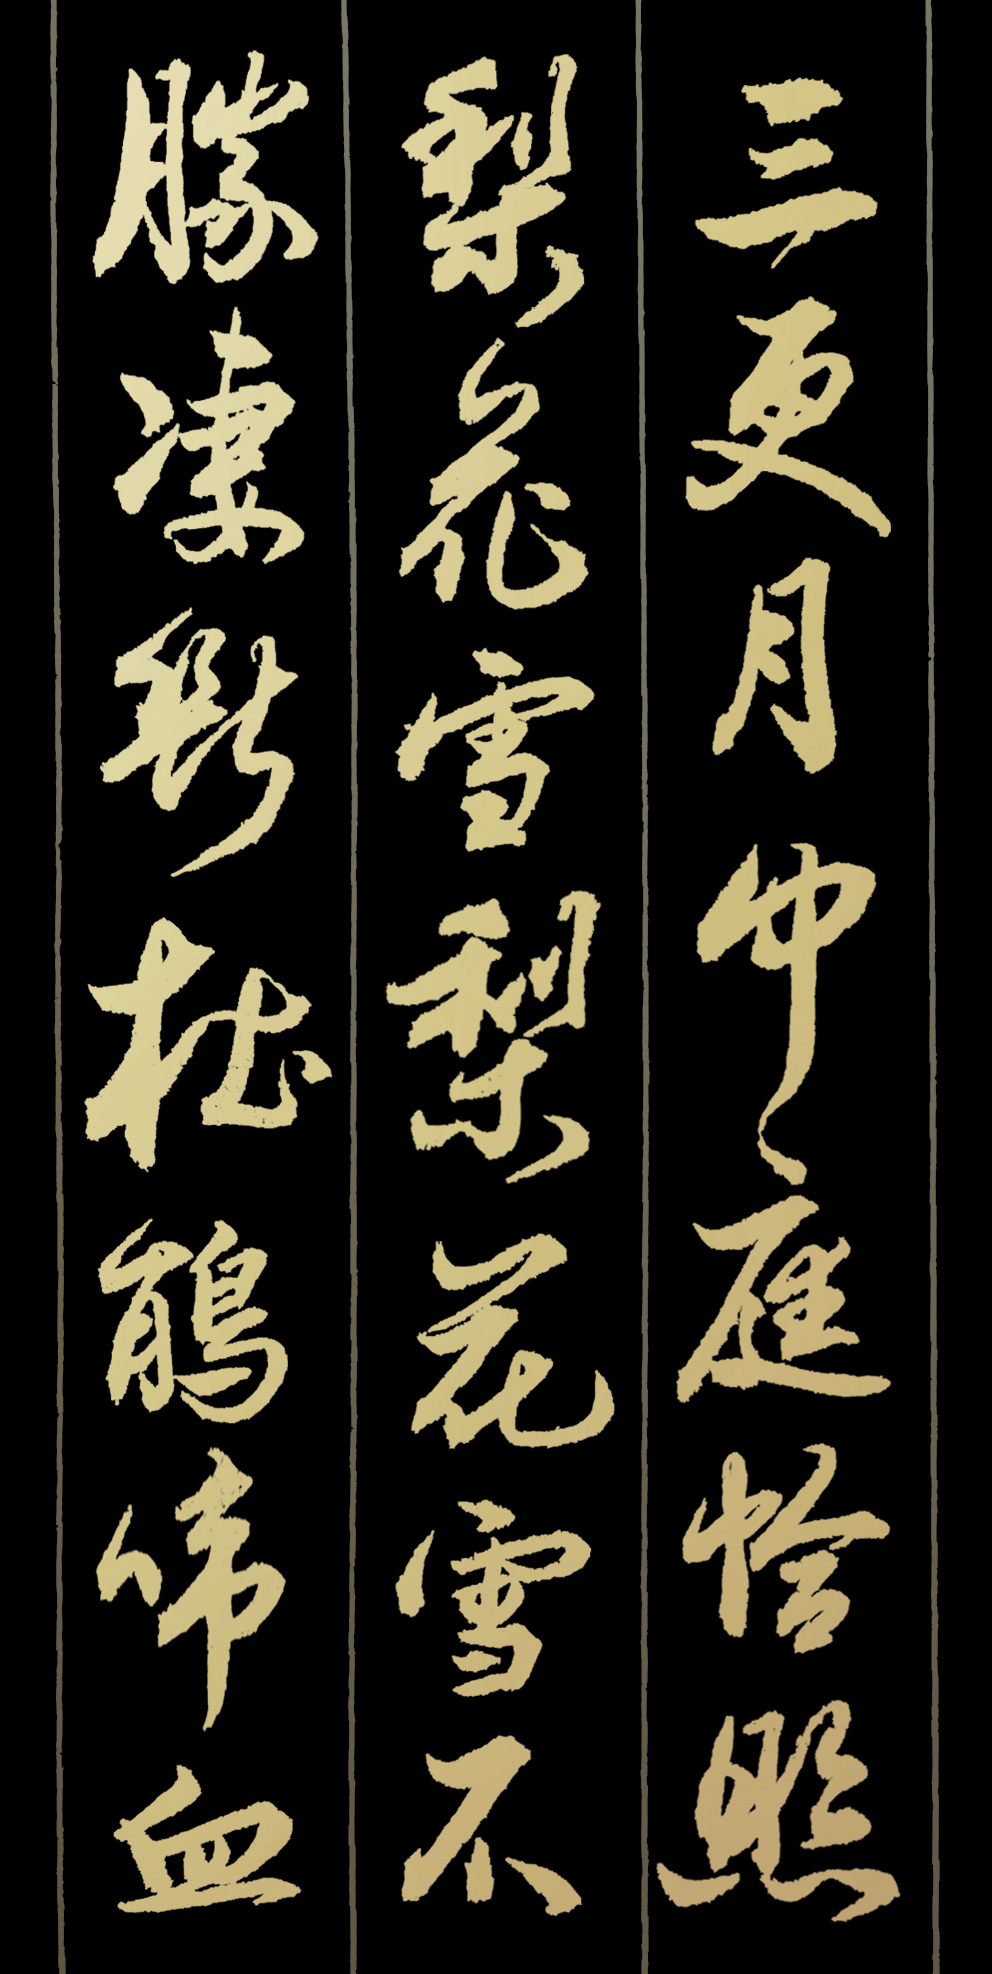 三更月中庭恰照
梨花雪梨花雪不
勝淒斷杜鵑啼血